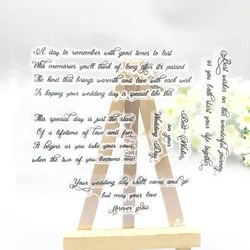 A day to remember with great times to last
With memories you'll think of, long after it's passed
The kind that brings warmth and love with each wish
Is hoping your wedding day is special like this
This special day is just the start
Of a lifetime of love and
It begins as you take your vows,
when the two of you become one
Your wedding day shall come and go
but may your love
forever grow.
Best Wishes
on your
Wedding Day
Best wishes on this wonderful journey,
as you both start your life together